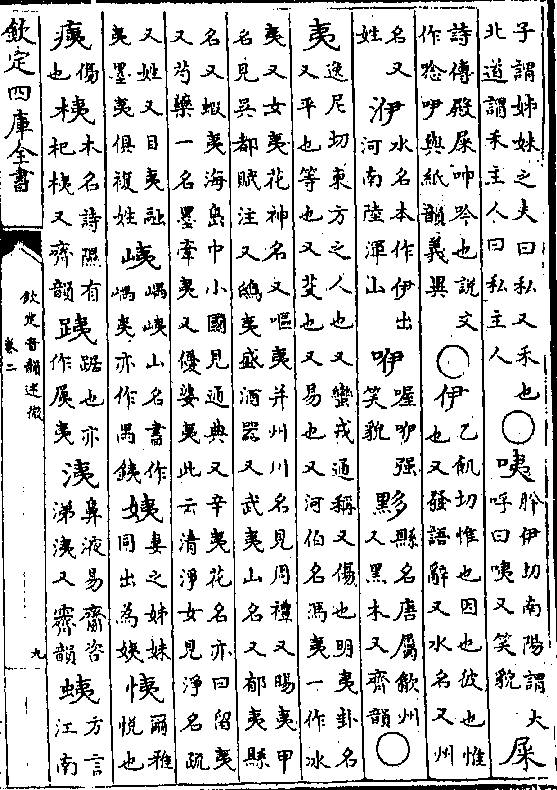 子謂姊妹之夫曰私又禾也
北道謂禾主人曰私主人
○咦
肸伊切南陽謂大
呼曰咦又笑貌
屎
詩傳殿屎呻吟也說文
作唸吚與紙韻義異
○伊
乙飢切惟也因也彼也惟
也又發語辭又水名又州
名又
姓
洢
水名本作伊出
河南陸渾山
咿
喔咿强
笑貌
黟
縣名唐屬歙州
又黑木又齊韻
○
夷
逸尼切東方之人也又蠻戎通稱又傷也明夷卦名
又平也等也又芟也又易也又河伯名馮夷一作冰
夷又女夷花神名又嘔夷并州川名見周禮又暘夷甲
名見吳都賦注又鴟夷盛酒器又武夷山名又郁夷縣
名又蝦夷海島中小國見通典又辛夷花名亦曰留夷
又芍藥一名墨牽夷又優婆夷此云清淨女見淨名疏
又姓又目夷訟
夷墨夷俱複姓
峓
嵎峓山名書作
嵎夷亦作禺銕
姨
妻之姊妹
同出為姨
恞
爾雅
悅也
痍
傷
也
桋
木名詩隰有
杞桋又齊韻
跠
踞也亦
作夷
洟
鼻液易齎咨
涕洟又霽韻
蛦
方言
江南
欽定四庫全書
欽定音韻述微
卷二
九